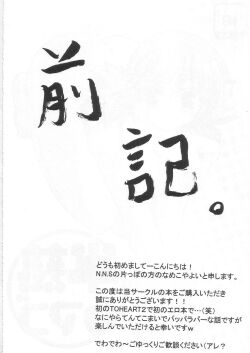 前記。
どうも初めましてーこんにちは！
N.N.Sの片っぽの方のなめこやよいと申します。
この度は当サークルの本をご購入いただき
誠にありがとうございます！！
初のTOHEART2で初のエロ本で…(笑)
なにやらてんてこまいでバッパラパーな話ですが
楽しんでいただけると幸いですw
でわでわ～ごゆっくりご歓談ください(アレ？